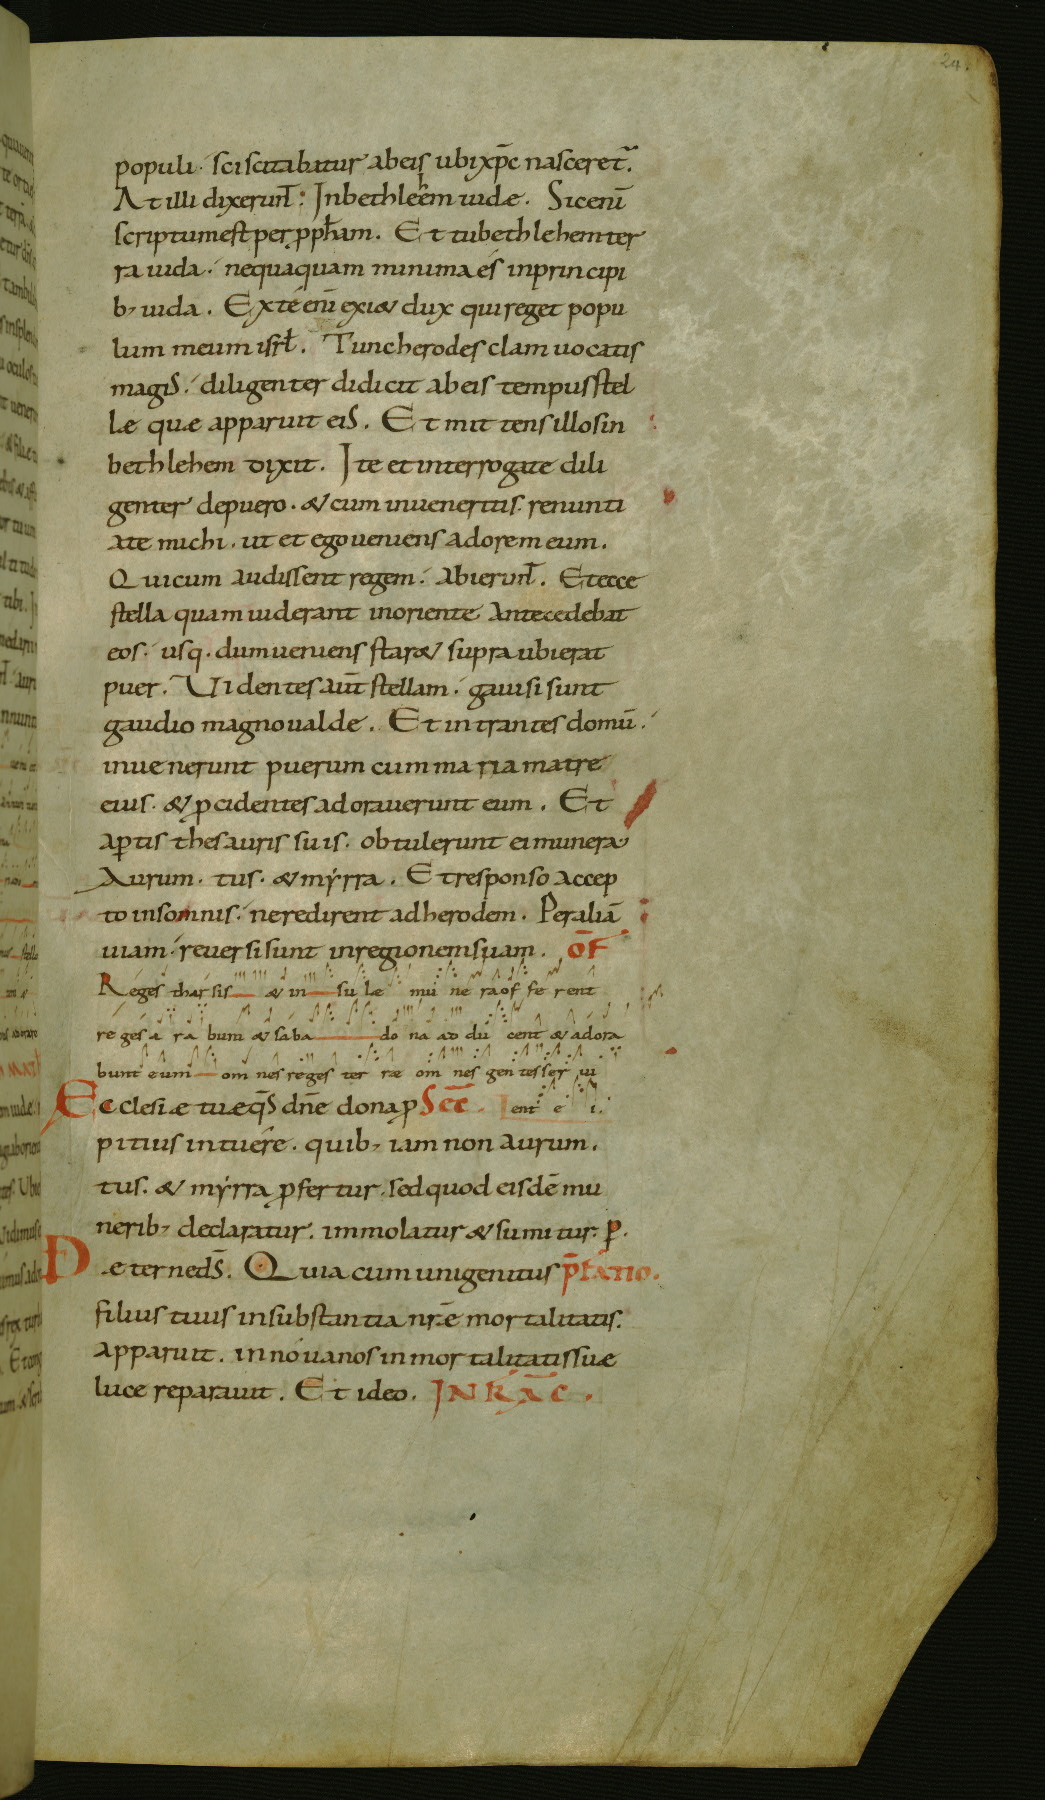 24.
populi· sciscitabatur abeis ubixp̄c nasceret᷑.
At illi dixerun̄t: Inbethleēm iudæ. Sicenī
scriptumest per ꝓph̄am. Et tubethlehem ter
ra iuda· nequaquam minima es inprincipi
b; iuda. Exte enī exi& dux qui reget popu
lum meum isrł. Tuncherodes clam uocatis
magis· diligenter didicit abeis tempus stel
læ quæ apparuit eis. Et mittens illosin
bethlehem dixit. Ite et interrogate dili
genter depuero. & cum inueneritis· renunti
ate michi. ut et ego ueniens adorem eum.
Quicum audissent regem· abierun̄t. Etecce
stella quam uiderant inoriente antecedebat
eos· usq· dumueniens star& supra ubierat
puer. Uidentes aut̄ stellam· gauisi sunt
gaudio magno ualde. Et intrantes domū·
inuenerunt puerum cum maria matre
eius· & ꝓcidentes adorauerunt eum. Et
aꝑtis thesauris suis· obtulerunt ei munera
Aurum· tus· & myrra. Et responso accep
to insomnis· neredirent adherodem. Peraliā
uiam· reuersi sunt inregionem suam. OF̄
Reges tharsis & in sulæ mu ne ra offe rent
reges a ra bum & saba do na ad du cent & adora
bunt eum omnes reges ter ræ om nes gentes ser ui
Ecclesiæ tuæ q̄s dn̄e dona ꝓ SEC̄ ent e i.
pitius intuere. quib; iam non aurum.
tus. & myrra ꝓfertur. sed quod eisdē mu
nerib; declaratur. immolatur & sumitur. ꝑ.
D æterne ds̄. Quia cum unigenitus p̄fatio.
filius tuus insubstantia nr̄e mortalitatis.
apparuit. in nouanos inmortalitatis suæ
luce reparauit. Et ideo. INFRA AC̄.